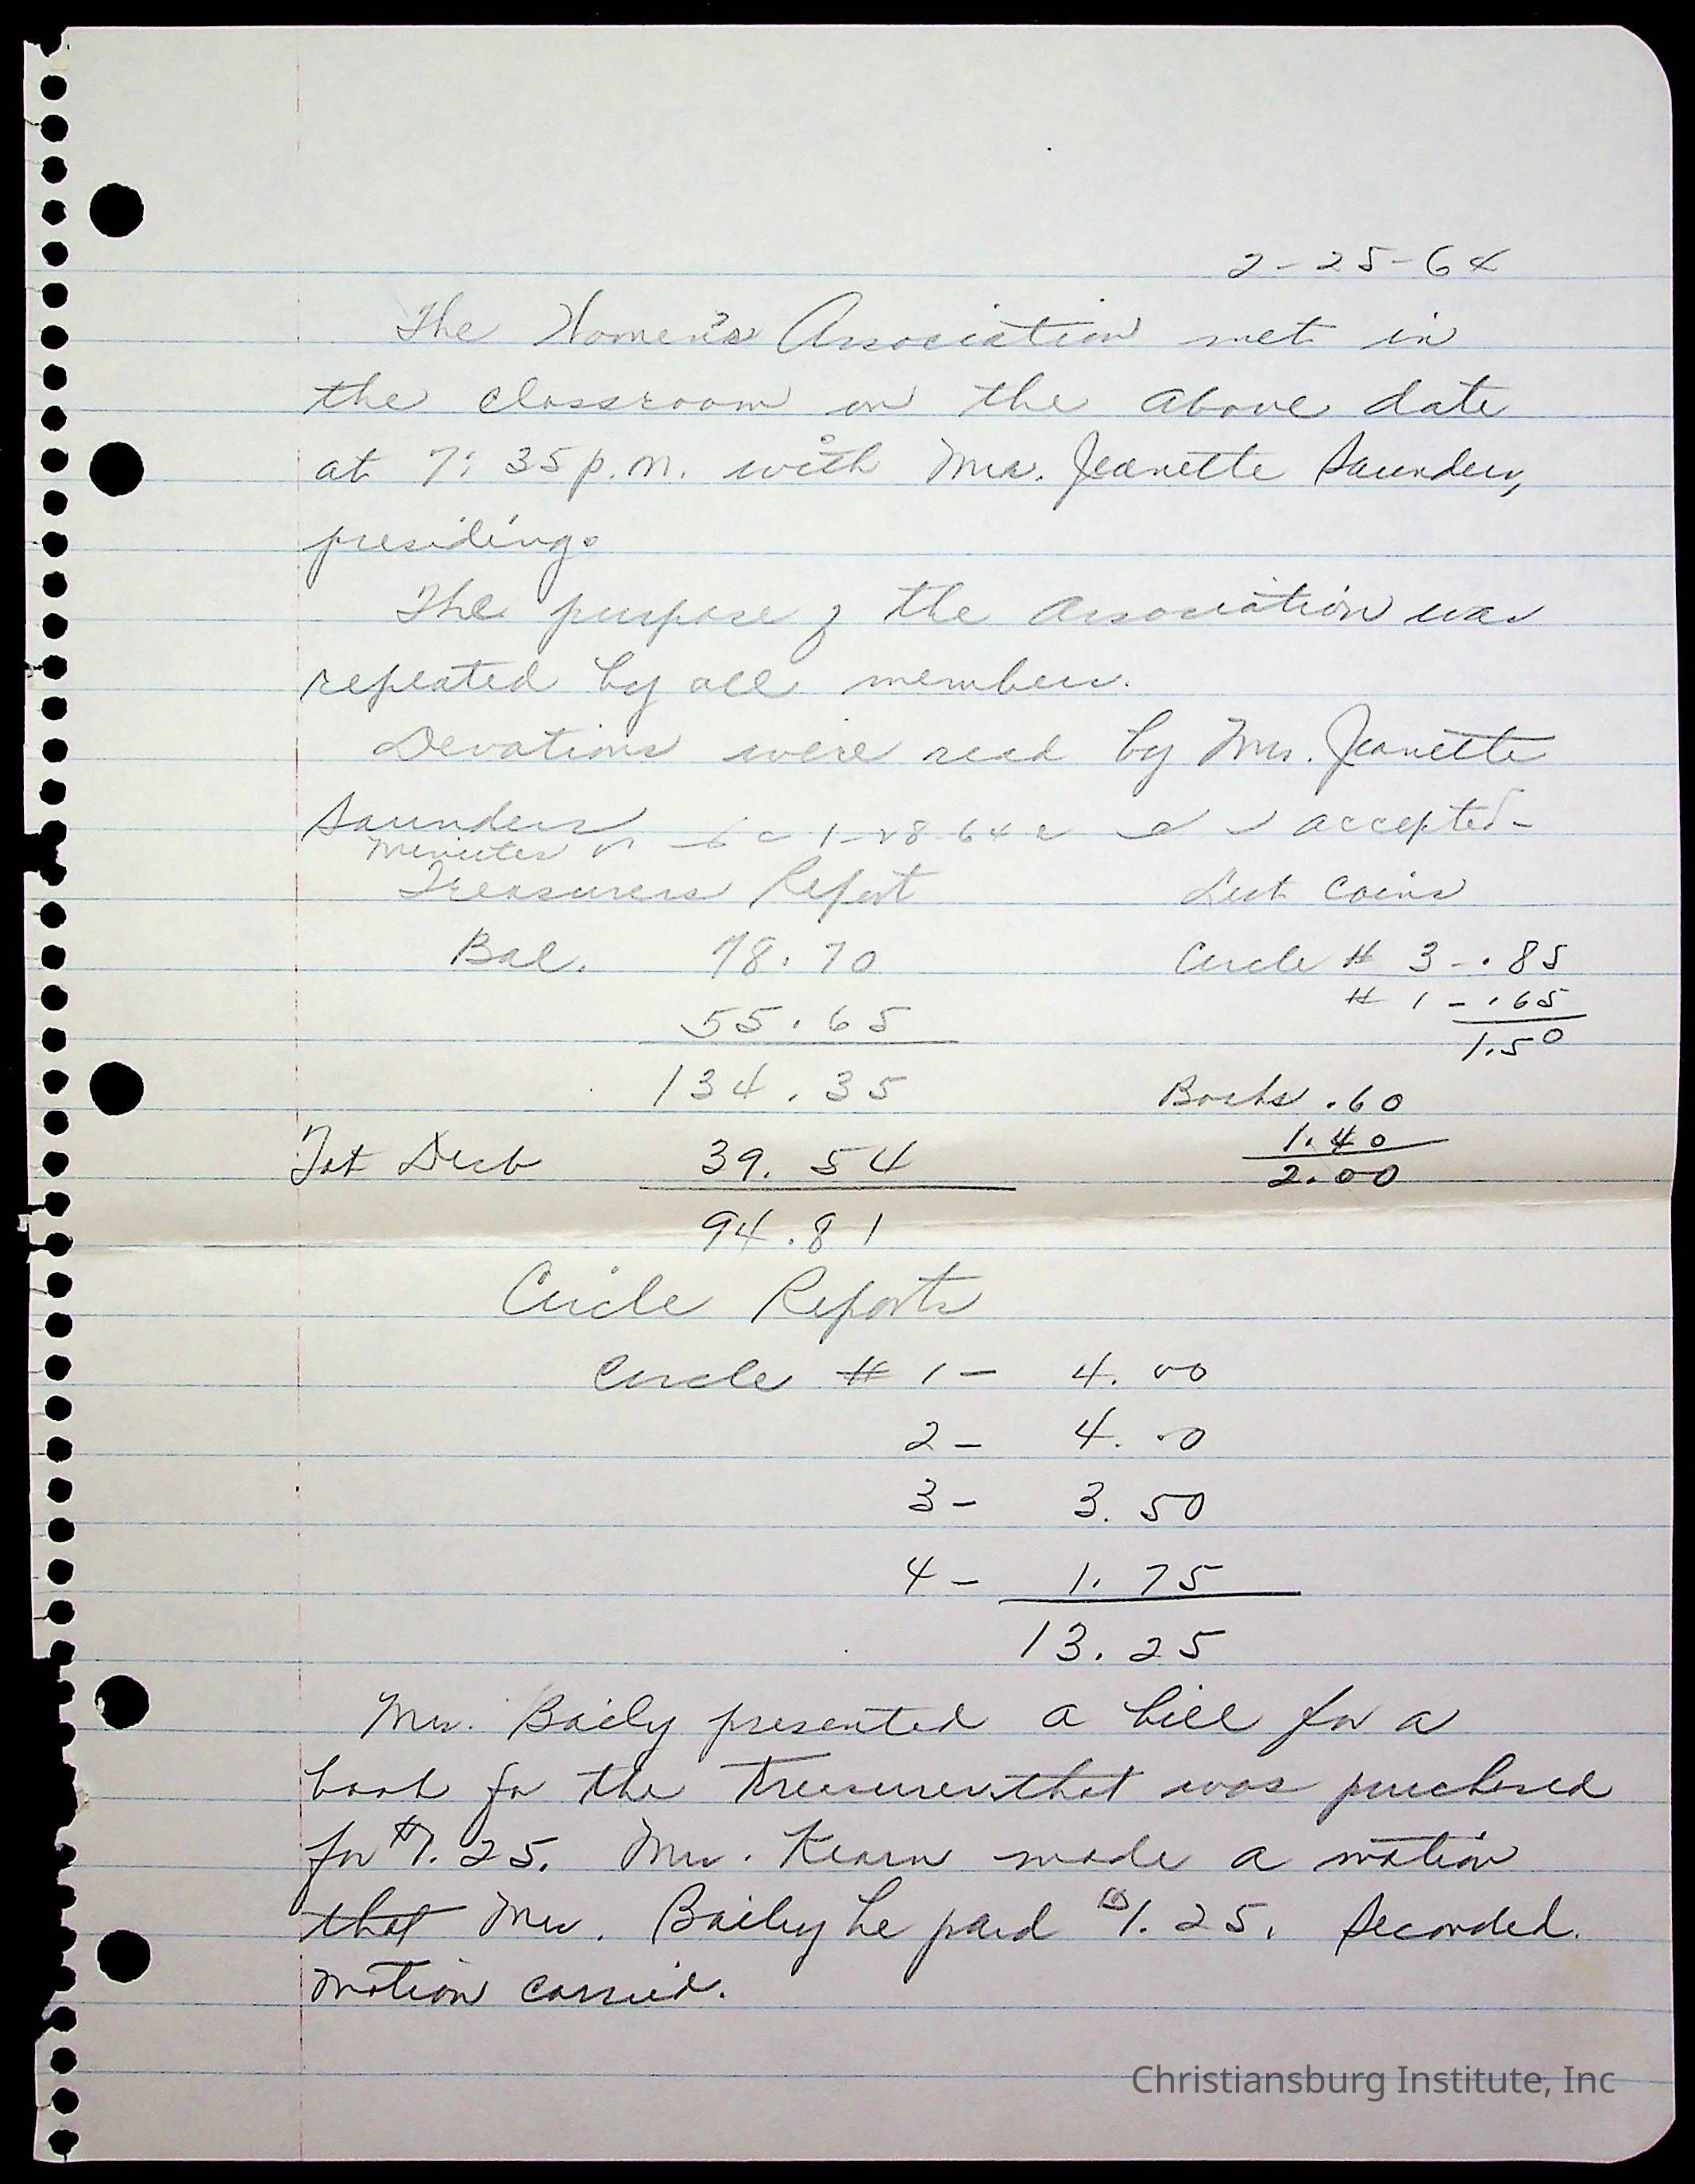 2-25-64
The Women's Association met in
the classroom on the above date
at 7:35 p.m. with Mrs. Jeanette Saunders,
presiding.
The purpose of the Association was
repeated by all members.
Devotions were read by Mrs. Jeanette
Saunders
Minutes 1-28-64 accepted-
Treasurers Report
Lent Coins
Bal. 78.70
Circle # 3-.85
# 1-.65
55.65
1.50
134.35
Books .60
Tot Disb 39.54
1.40
2.00
94.81
Circle Reports
Circle # 1- 4.00
2- 4.00
3- 3.50
4- 1.75
13.25
Mrs. Baily presented a bill for a
book for the Treasurer that was purchased
for $1.25. Mrs. Kearn made a motion
that Mrs. Bailey be paid $1.25. Seconded.
Motion carried.
Christiansburg Institute, Inc